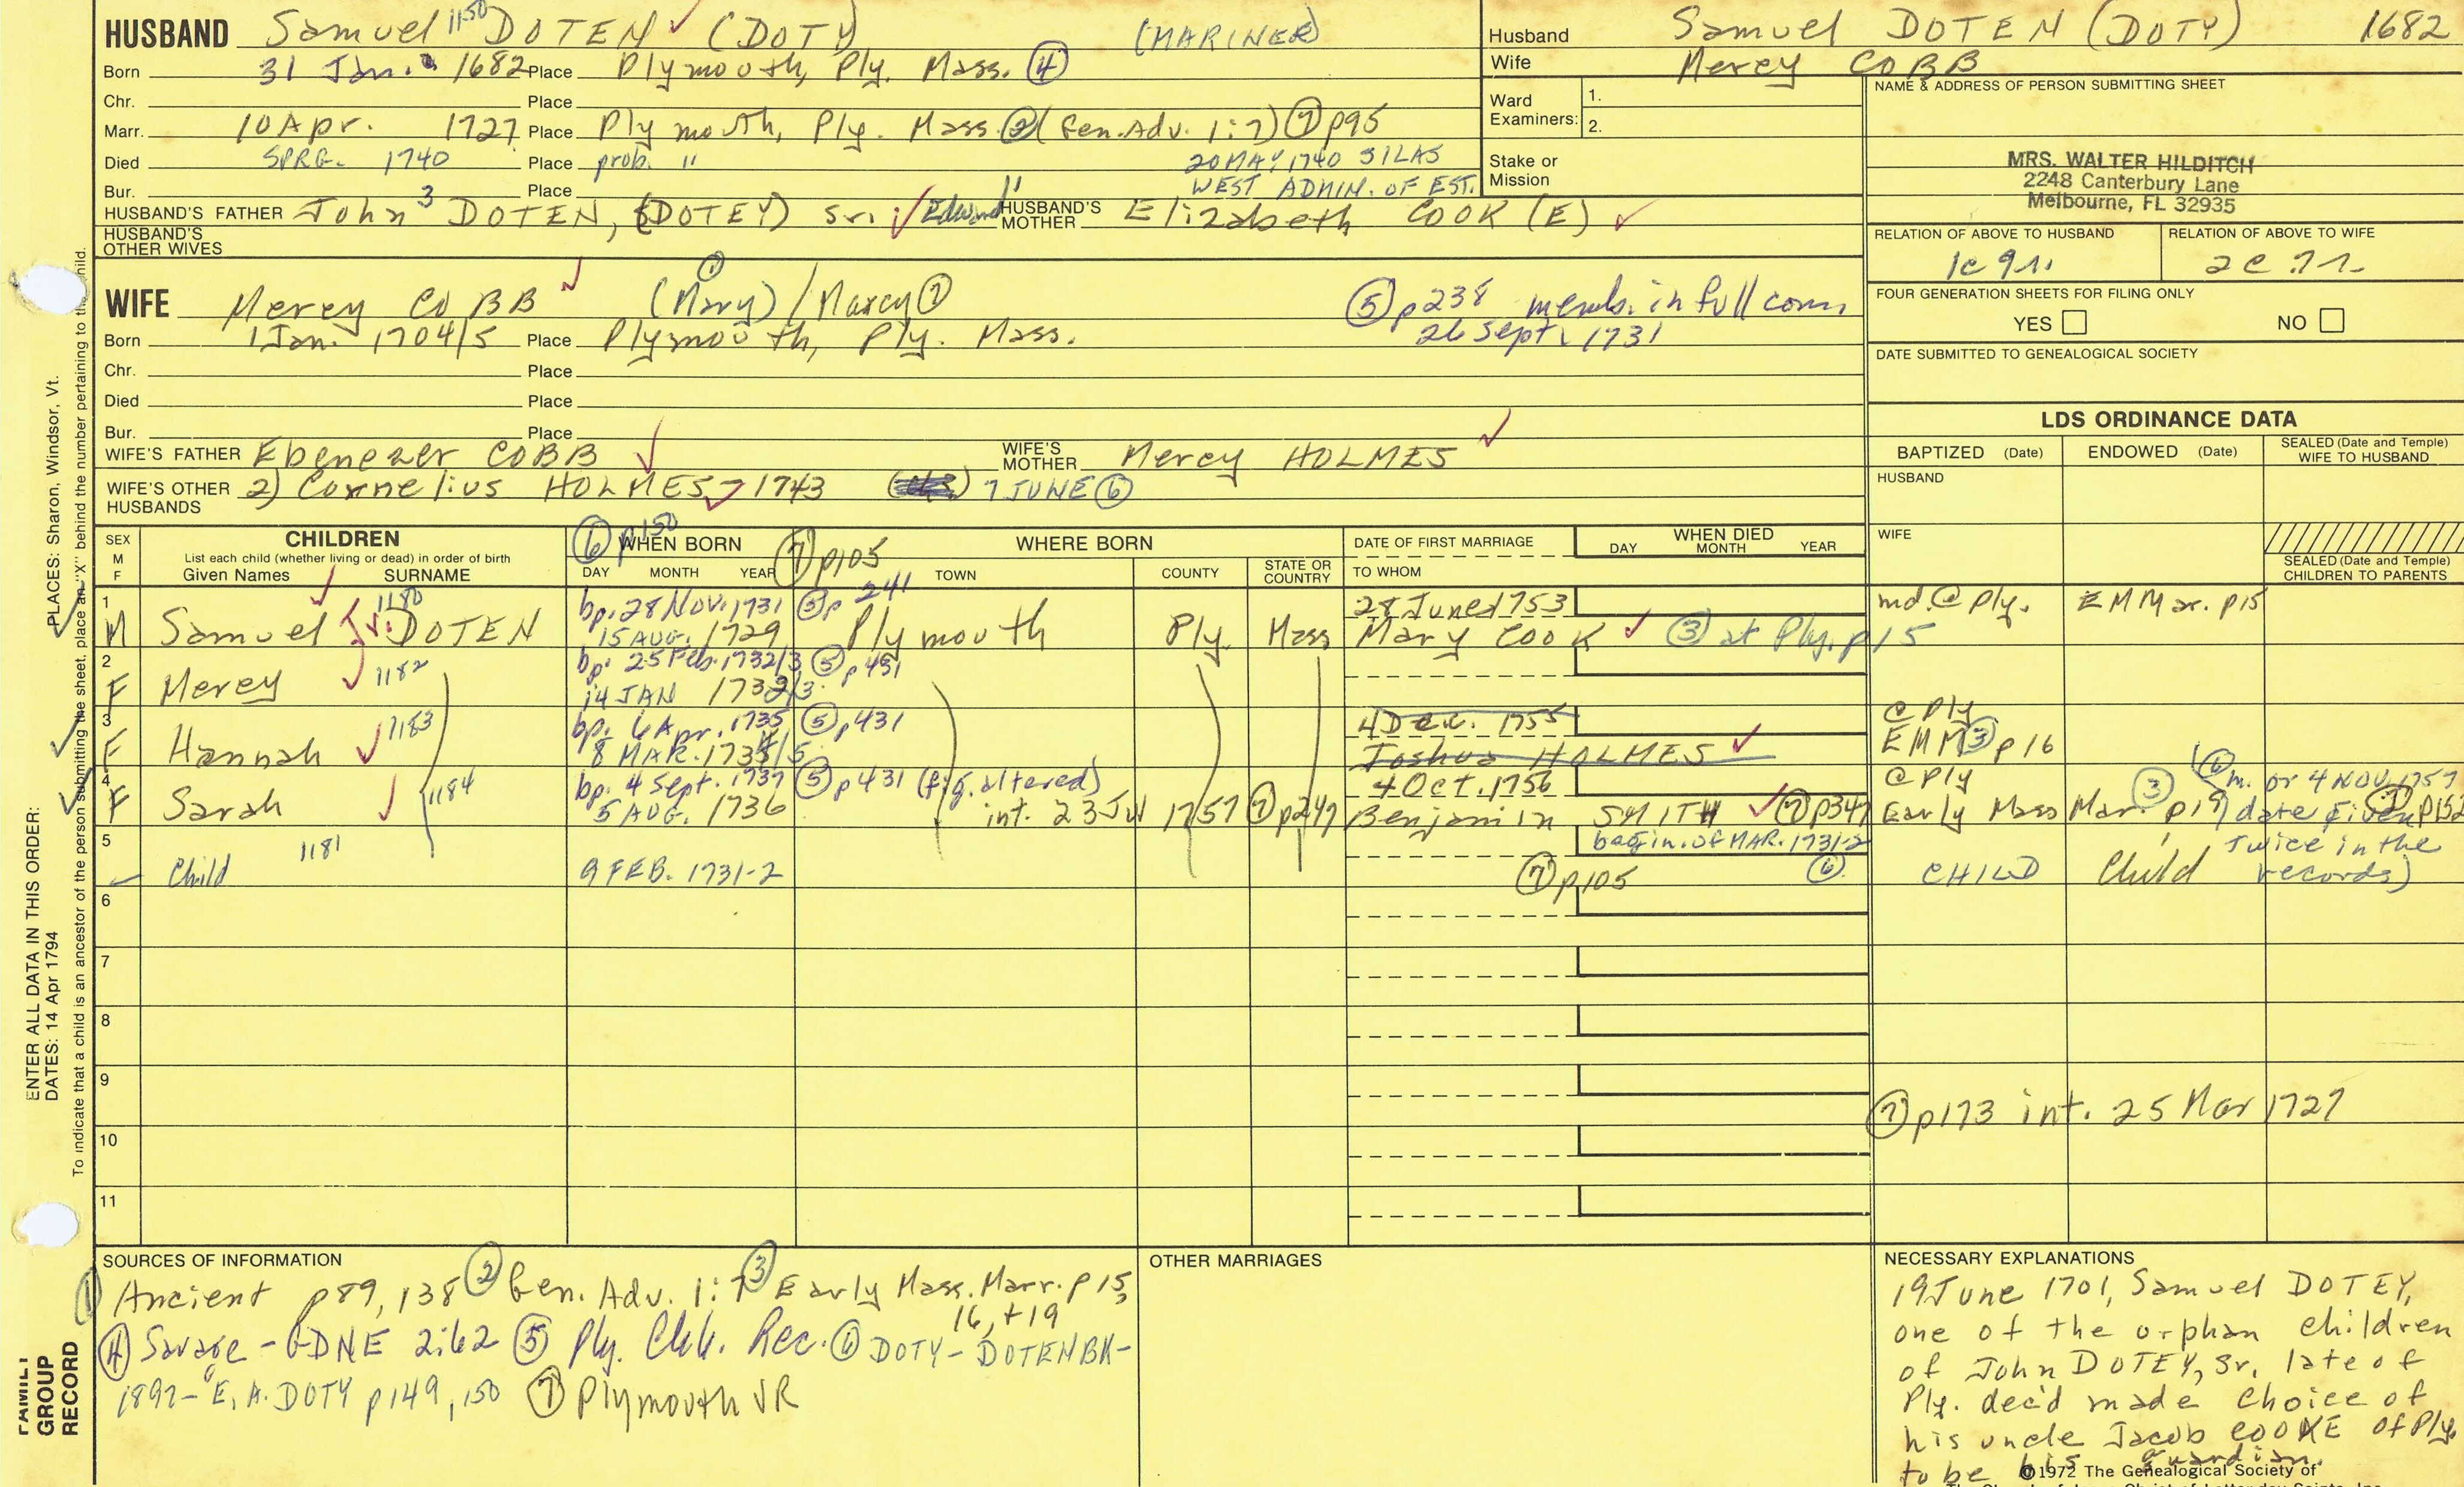 HUSBAND Samuel 1150 DOTEN ✓ (DOTY) (MARINER)
Born 31 Jan. 1682 Place Plymouth, Ply. Mass. ④
Chr. Place
Marr. 10 Apr. 1727 Place Plymouth, Ply. Mass. ② (Gen. Adv. 1:7) ⑦ p95
Died SPRG. 1740 Place prob. " 20 MAY 1740 SILAS
Bur. Place " WEST ADMIN. OF EST.
HUSBAND'S FATHER John 3 DOTEN, (DOTEY) Sr. ✓ / Edward HUSBAND'S MOTHER Elizabeth COOK (E) ✓
HUSBAND'S OTHER WIVES
Husband Samuel DOTEN (DOTY) 1682
Wife Mercy COBB
Ward Examiners: 1.
2.
Stake or Mission
NAME & ADDRESS OF PERSON SUBMITTING SHEET
MRS. WALTER HILDITCH
2248 Canterbury Lane
Melbourne, FL 32935
RELATION OF ABOVE TO HUSBAND RELATION OF ABOVE TO WIFE
FOUR GENERATION SHEETS FOR FILING ONLY
YES NO
DATE SUBMITTED TO GENEALOGICAL SOCIETY
WIFE Mercy COBB ✓ (Mary) ① / Marcy ⑦ ⑤ p238 memb. in full comm.
26 Sept. 1731
Born 1 Jan. 1704/5 Place Plymouth, Ply. Mass.
Chr. Place
Died Place
Bur. Place
WIFE'S FATHER Ebenezer COBB ✓ WIFE'S MOTHER Mercy HOLMES ✓
WIFE'S OTHER HUSBANDS 2) Cornelius HOLMES ✓ - 1743 7 JUNE ⑥
LDS ORDINANCE DATA
BAPTIZED (Date) ENDOWED (Date) SEALED (Date and Temple) WIFE TO HUSBAND
HUSBAND
WIFE
SEALED (Date and Temple) CHILDREN TO PARENTS
SEX M F
CHILDREN
List each child (whether living or dead) in order of birth
Given Names SURNAME
⑥ p150 WHEN BORN ⑦ p105
DAY MONTH YEAR
WHERE BORN
TOWN COUNTY STATE OR COUNTRY
DATE OF FIRST MARRIAGE
TO WHOM
WHEN DIED
DAY MONTH YEAR
1 1180 bp. 28 Nov. 1731 ⑤ p 241 28 June 1753 md. @ Ply. EMMar. p15
M Samuel Jr. DOTEN 15 AUG. 1729 Plymouth Ply. Mass Mary COOK ✓ ③ at Ply. p15
2 bp. 25 Feb. 1732/3 ⑤ p431
F Mercy ✓ 1182 14 JAN 1732/3
3 bp. 6 Apr. 1735 ⑤ p431 4 Dec. 1755 @ Ply
F Hannah ✓ 1183 8 MAR. 1734/5 Joshua HOLMES ✓ EMM ③ p16
4 bp. 4 Sept. 1737 ⑤ p431 (fig. altered) 4 Oct. 1756 @ Ply (⑥ m. or 4 NOV. 1757
F Sarah ✓ 1184 5 AUG. 1736 int. 23 Jul 1757 ⑦ p247 Benjamin SMITH ✓ ⑦ p347 Early Mass Mar. ③ p19 date given p152
5 begin. of MAR. 1731-2 twice in the
Child 1181 9 FEB. 1731-2 ⑦ p105 ⑥ CHILD Child records)
6
7
8
9
⑦ p173 int. 25 Mar 1727
10
11
SOURCES OF INFORMATION
① Ancient p89, 138 ② Gen. Adv. 1:7 ③ Early Mass. Marr. p 15,
16, + 19
④ Savage - GDNE 2:62 ⑤ Ply. Chh. Rec. ⑥ DOTY-DOTEN BK-
1897- E. A. DOTY p149, 150 ⑦ Plymouth VR
OTHER MARRIAGES
NECESSARY EXPLANATIONS
19 June 1701, Samuel DOTEY,
one of the orphan children
of John DOTEY, Sr. late of
Ply. dec'd made choice of
his uncle Jacob COOKE of Ply.
to be his guardian.
©1972 The Genealogical Society of
ENTER ALL DATA IN THIS ORDER:
DATES: 14 Apr 1794 PLACES: Sharon, Windsor, Vt.
To indicate that a child is an ancestor of the person submitting the sheet, place an "X" behind the number pertaining to the child.
FAMILY GROUP RECORD